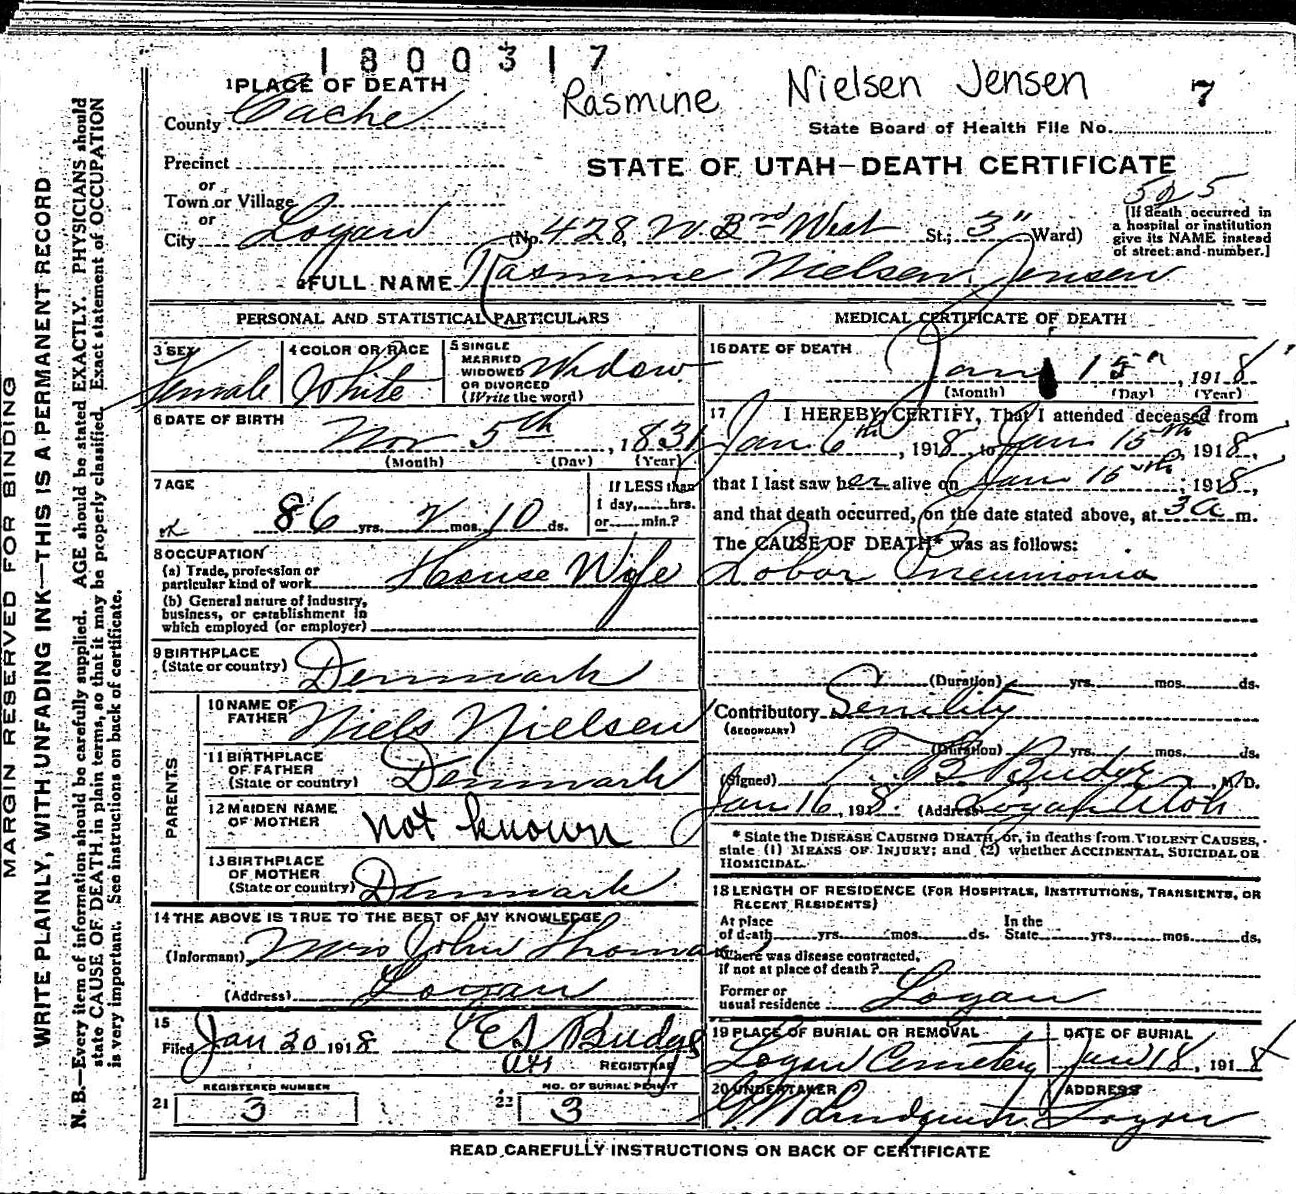 1800317
Rasmine Nielsen Jensen 7
1 PLACE OF DEATH
County Cache
State Board of Health File No.
Precinct
STATE OF UTAH—DEATH CERTIFICATE
or
Town or Village
525
or
City Logan (No. 428 W. 3rd West St.; 3" Ward)
[If death occurred in
a hospital or institution
give its NAME instead
of street and number.]
2 FULL NAME Rasmine Nielsen Jensen
PERSONAL AND STATISTICAL PARTICULARS
3 SEX Female
4 COLOR OR RACE White
5 SINGLE
MARRIED
WIDOWED
OR DIVORCED
(Write the word)
Widow
6 DATE OF BIRTH
Nov 5th, 1831
(Month) (Day) (Year)
7 AGE
86 yrs. 2 mos. 10 ds.
If LESS than
1 day, hrs.
or min.?
ok
8 OCCUPATION
(a) Trade, profession or
particular kind of work House Wife
(b) General nature of industry,
business, or establishment in
which employed (or employer)
9 BIRTHPLACE
(State or country) Denmark
PARENTS
10 NAME OF
FATHER Niels Nielsen
11 BIRTHPLACE
OF FATHER
(State or country) Denmark
12 MAIDEN NAME
OF MOTHER not known
13 BIRTHPLACE
OF MOTHER
(State or country) Denmark
14 THE ABOVE IS TRUE TO THE BEST OF MY KNOWLEDGE
(Informant) Mrs John Thomas
(Address) Logan
15
Filed Jan 20, 1918 Budge
REGISTRAR
REGISTERED NUMBER
21 3
NO. OF BURIAL PERMIT
22 3
MEDICAL CERTIFICATE OF DEATH
16 DATE OF DEATH
Jan 15th, 1918
(Month) (Day) (Year)
17 I HEREBY CERTIFY, That I attended deceased from
Jan 6th, 1918, to Jan 15th, 1918,
that I last saw her alive on Jan 15th, 1918,
and that death occurred, on the date stated above, at 3 a m.
The CAUSE OF DEATH* was as follows:
Lobar Pneumonia
(Duration) yrs. mos. ds.
Contributory Senility
(SECONDARY)
(Duration) yrs. mos. ds.
(Signed) Budge, M.D.
Jan 16, 1918. (Address) Logan Utah
* State the DISEASE CAUSING DEATH, or, in deaths from VIOLENT CAUSES,
state (1) MEANS OF INJURY; and (2) whether ACCIDENTAL, SUICIDAL OR
HOMICIDAL.
18 LENGTH OF RESIDENCE (FOR HOSPITALS, INSTITUTIONS, TRANSIENTS, OR
RECENT RESIDENTS)
At place
of death yrs. mos. ds.
In the
State yrs. mos. ds.
Where was disease contracted,
if not at place of death?
Former or
usual residence Logan
19 PLACE OF BURIAL OR REMOVAL
Logan Cemetery
DATE OF BURIAL
Jan 18, 1918
20 UNDERTAKER
Lundquist
ADDRESS
Logan
READ CAREFULLY INSTRUCTIONS ON BACK OF CERTIFICATE
MARGIN RESERVED FOR BINDING
WRITE PLAINLY, WITH UNFADING INK—THIS IS A PERMANENT RECORD
N. B.—Every item of information should be carefully supplied. AGE should be stated EXACTLY. PHYSICIANS should
state CAUSE OF DEATH in plain terms, so that it may be properly classified. Exact statement of OCCUPATION
is very important. See instructions on back of certificate.